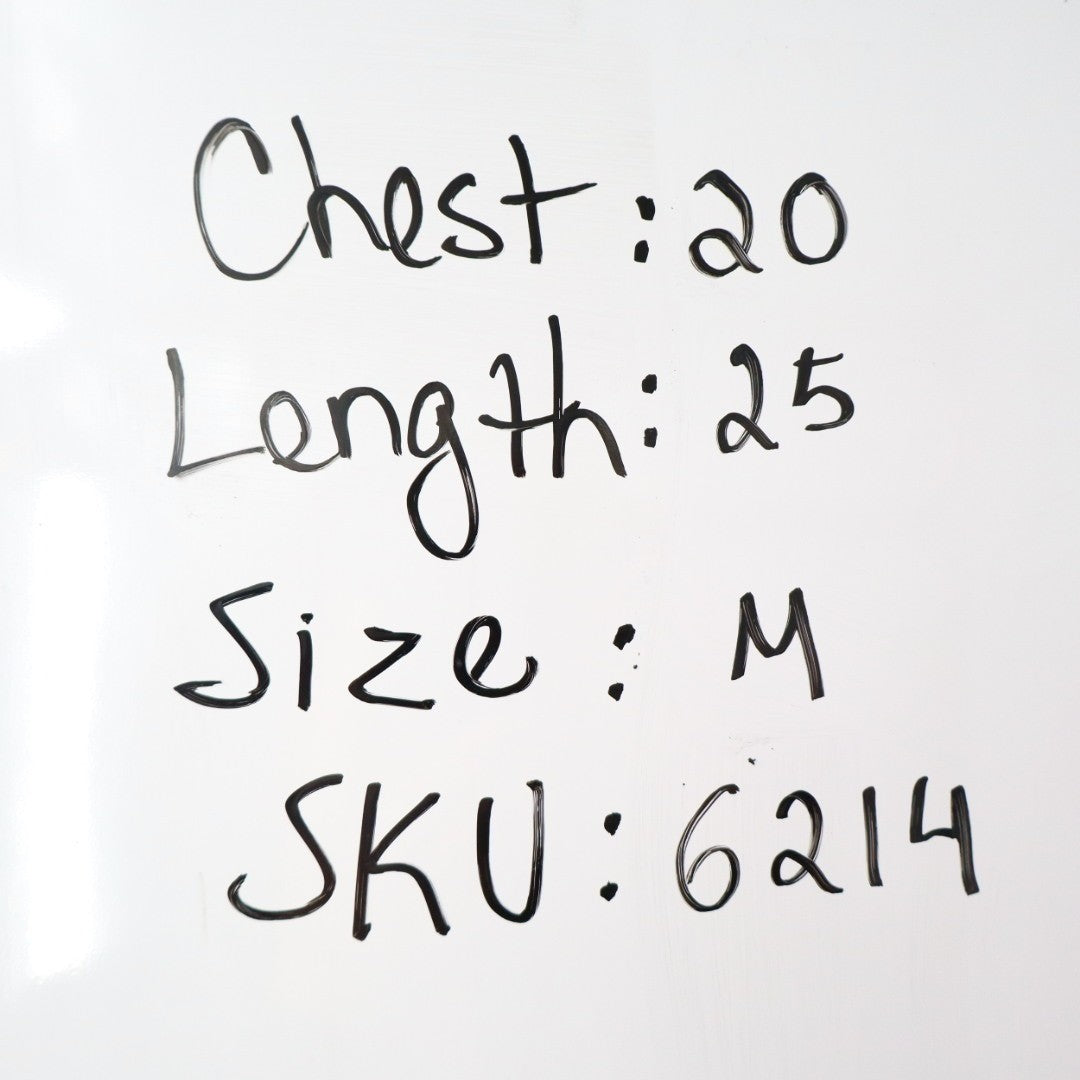 Chest: 20
Length: 25
Size: M
SKU: 6214